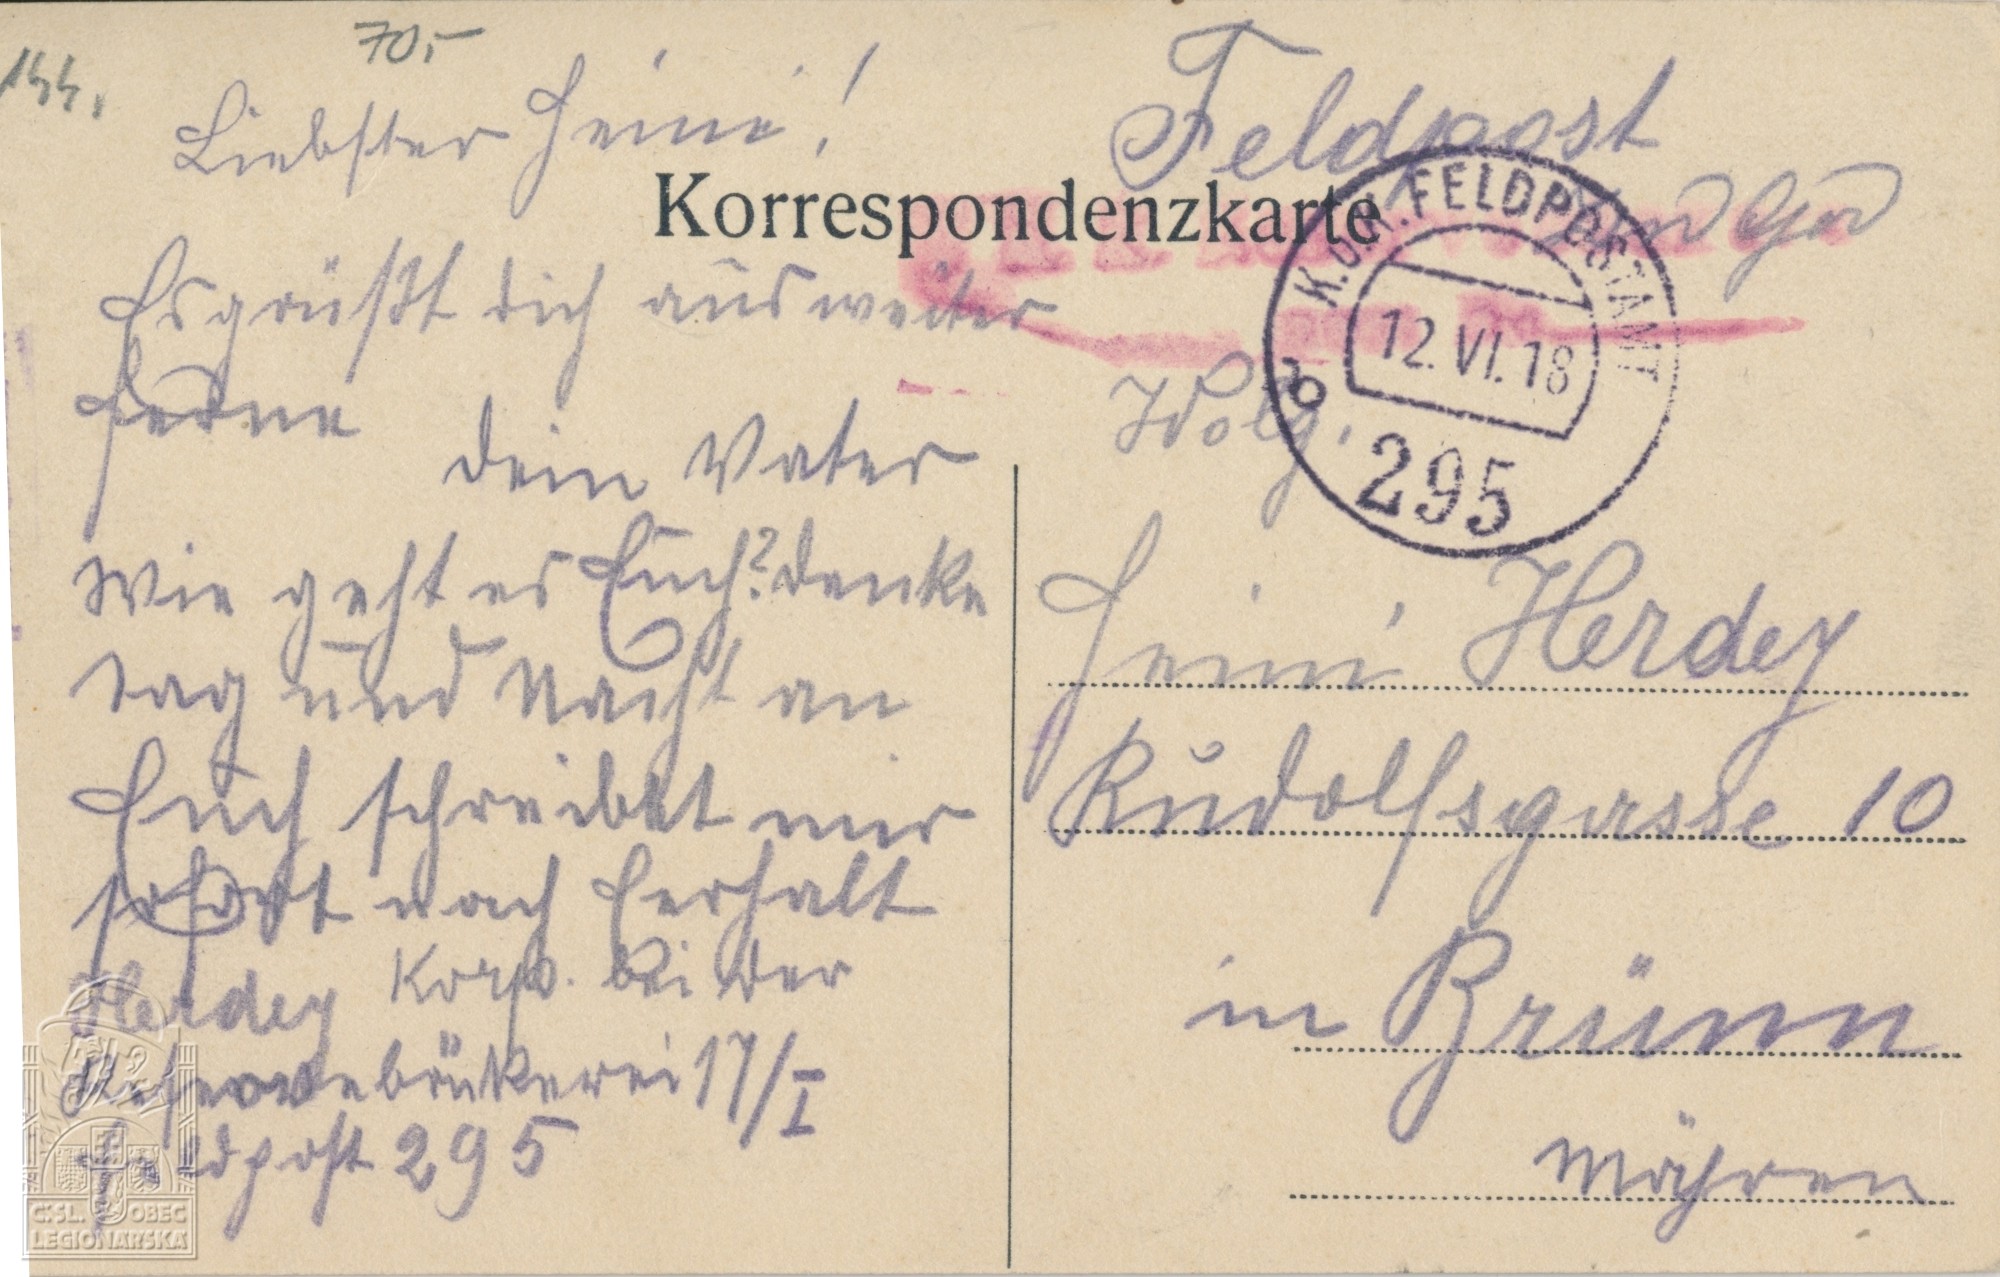 70,-
Liebster Heini!
Korrespondenzkarte
Es grüßt dich aus weiter
ferne
dein Vater
Wie geht es Euch? denke
tag und Nacht an
Euch schreibet mir
sofort nach Eerhalt
Herdey Korp. bei der
Reservebäckerei 17/I
Feldpost 295
Feldpost
K.u.K. FELDPOSTAMT
12. VI. 18
b
295
Wolg.
Heini Herdey
Rudolfsgasse 10
in Brünn
Mähren
Č.SL. OBEC
LEGIONÁŘSKÁ